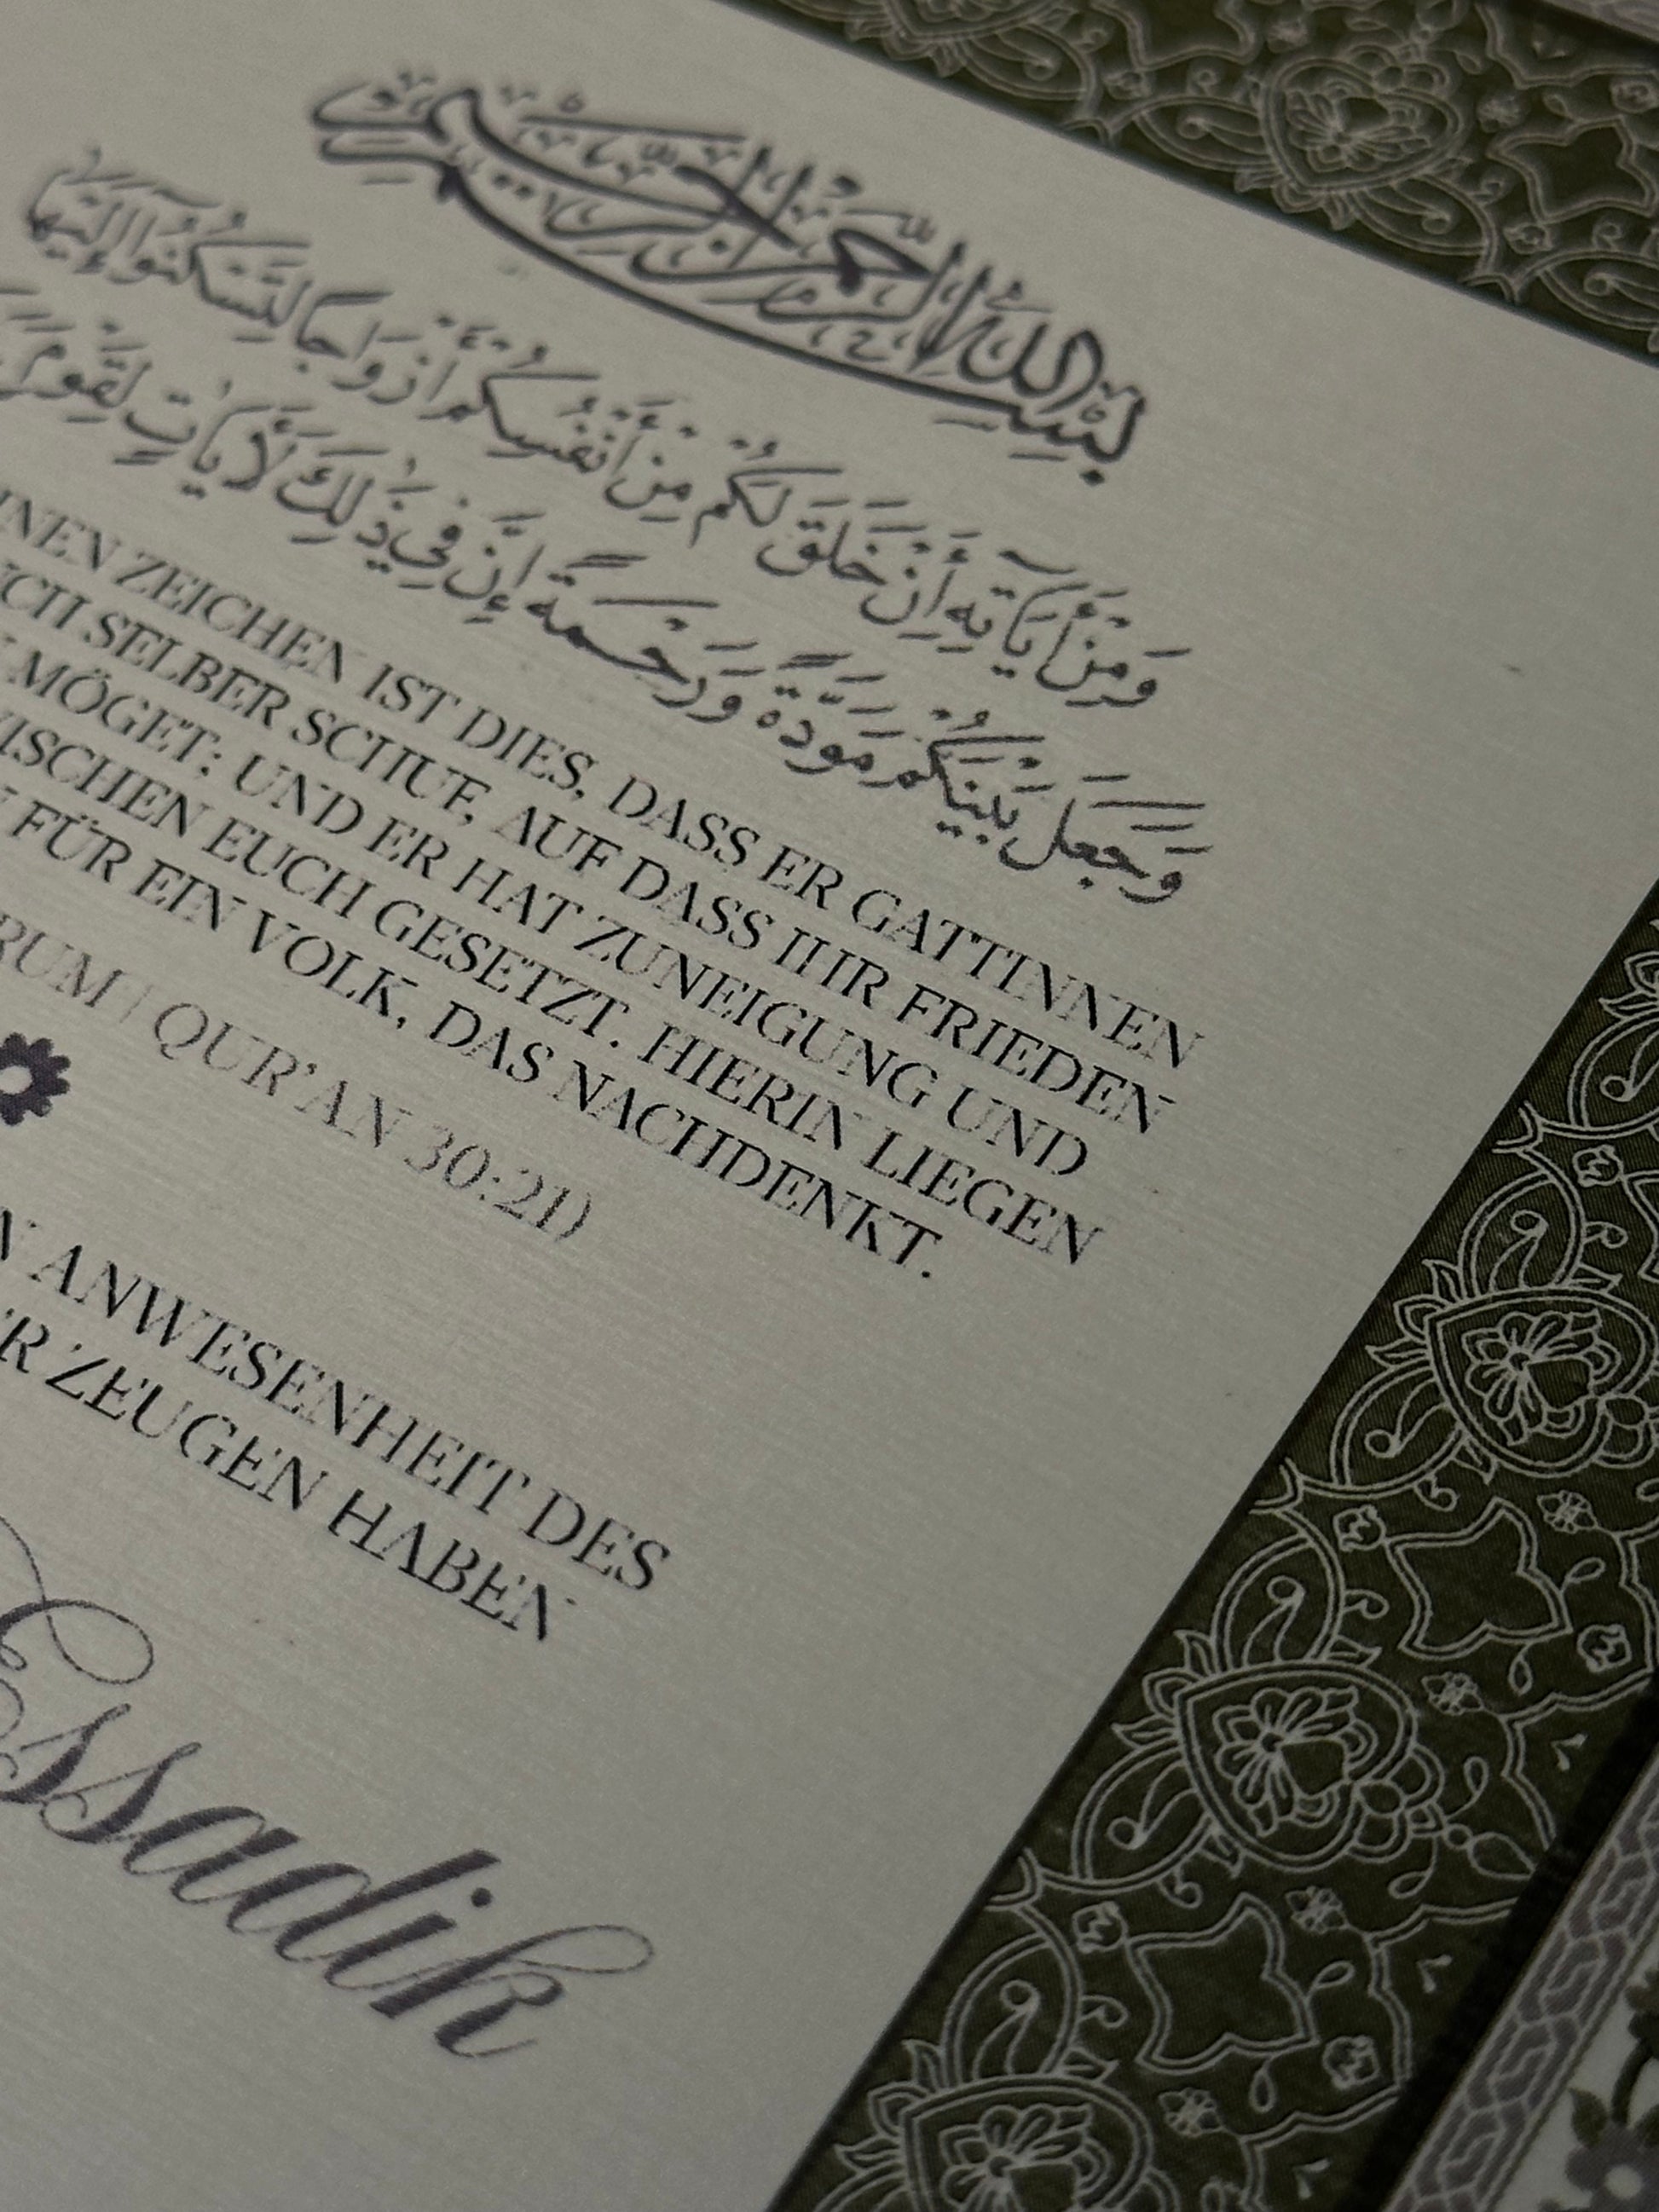 بِسْمِ اللهِ الرَّحْمٰنِ الرَّحِيمِ
وَمِنْ أَيَاتِهِ أَنْ خَلَقَ لَكُمْ مِنْ أَنْفُسِكُمْ أَزْوَاجًا لِتَسْكُنُوا إِلَيْهَا
وَجَعَلَ بَيْنَكُمْ مَوَدَّةً وَرَحْمَةً إِنَّ فِي ذٰلِكَ لَأَيَاتٍ لِقَوْمٍ
ZEICHEN IST DIES, DASS ER GATTINNEN
SELBER SCHUF, AUF DASS IHR FRIEDEN
MÖGET; UND ER HAT ZUNEIGUNG UND
EUCH GESETZT. HIERIN LIEGEN
FÜR EIN VOLK, DAS NACHDENKT.
RUM | QUR'AN 30:21)
ANWESENHEIT DES
ZEUGEN HABEN
Essadik